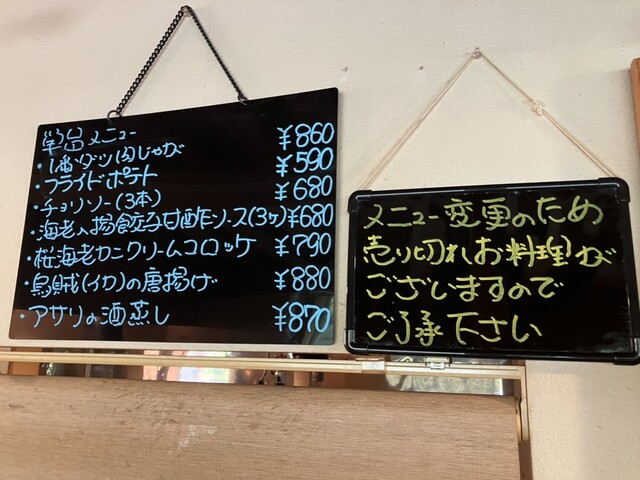 単品メニュー
・1番ダシ肉じゃが ¥860
・フライドポテト ¥590
・チョリソー(3本) ¥680
・海老入揚餃子甘酢ソース(3ヶ) ¥680
・桜海老カニクリームコロッケ ¥790
・烏賊(イカ)の唐揚げ ¥880
・アサリの酒蒸し ¥870
メニュー変更のため
売り切れお料理が
ございますので
ご了承下さい